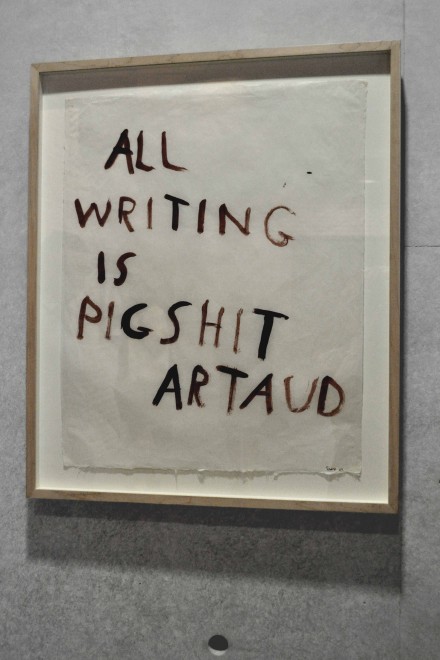 ALL
WRITING
IS
PIGSHIT
ARTAUD